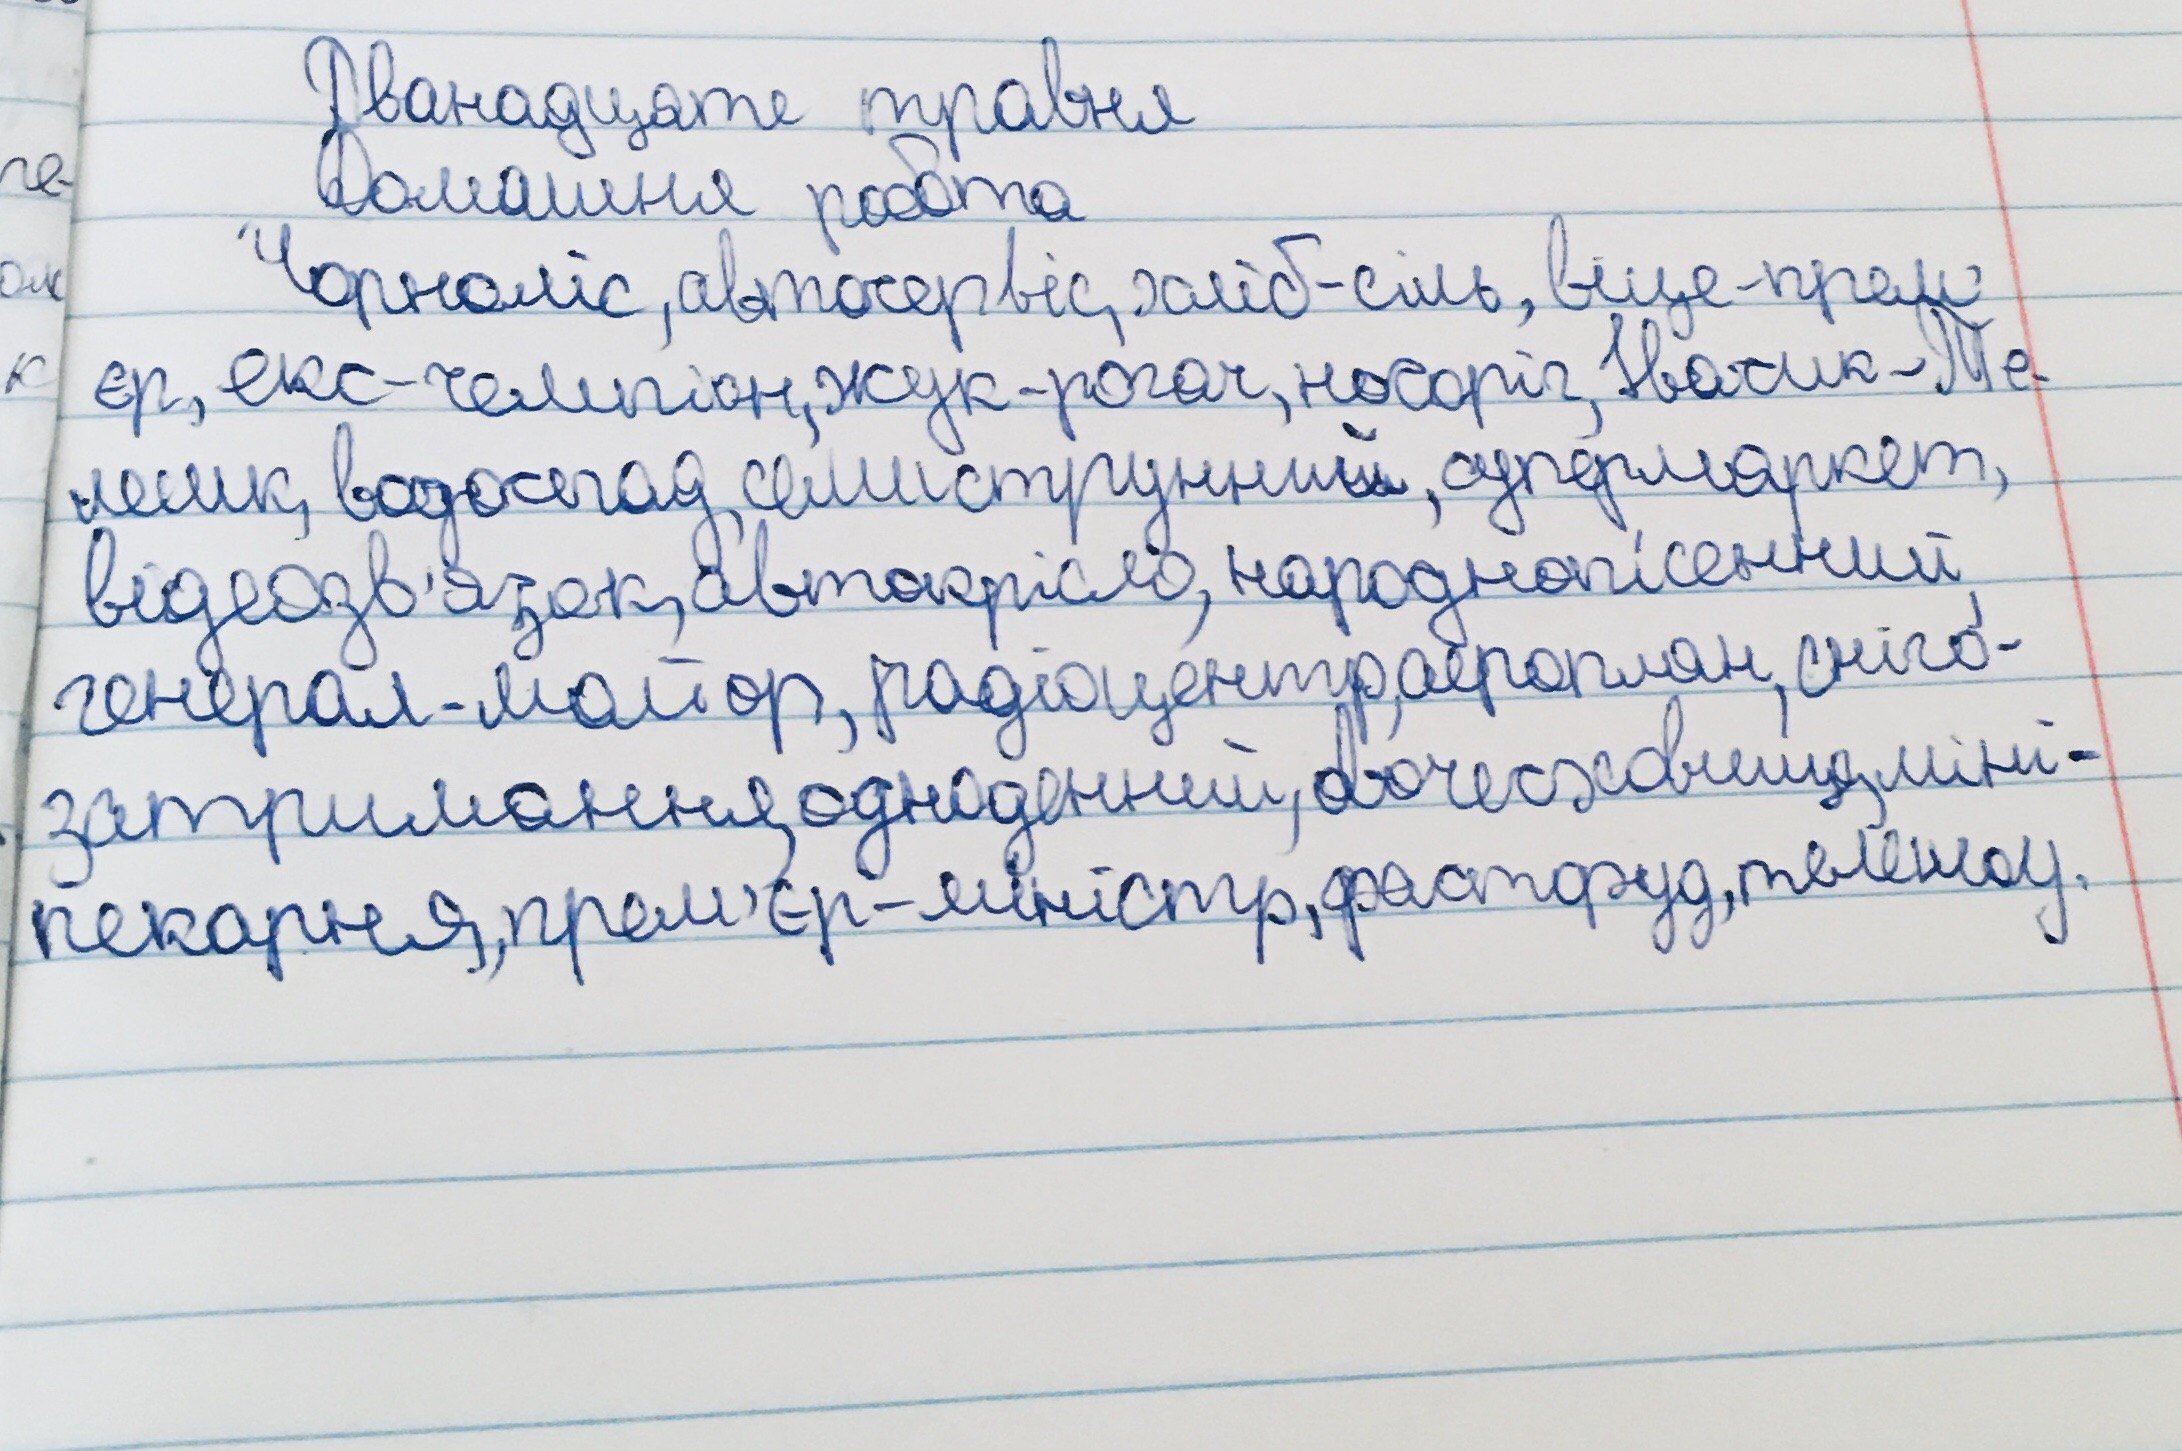 Дванадцяте травня
Домашня робота
Чорноліс, автосервіс, хліб-сіль, віце-прем'
єр, екс-чемпіон, жук-рогач, носоріг, Івасик-Те-
лесик, водоспад, семиструнний, супермаркет,
відеозв'язок, автокрісло, народнопісенний,
генерал-майор, радіоцентр, аероплан, сніго-
затримання, одноденний, овочесховище, міні-
пекарня, прем'єр-міністр, фастфуд, телешоу.